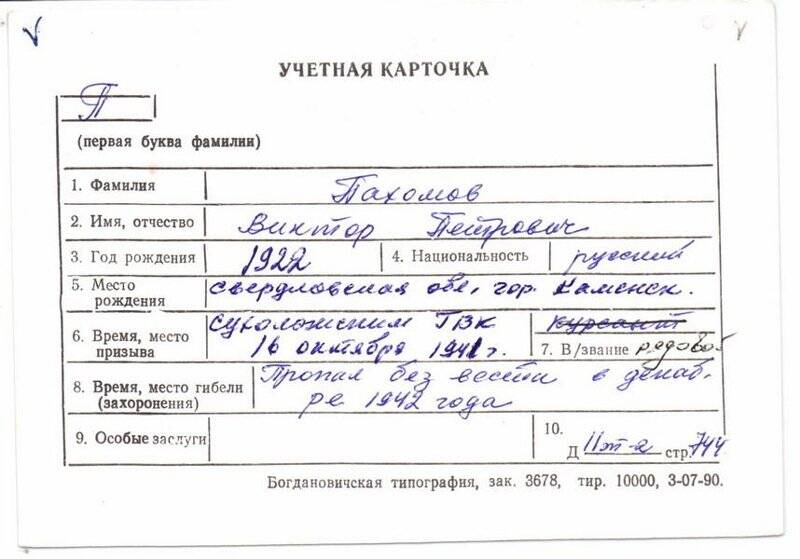 УЧЕТНАЯ КАРТОЧКА
П
(первая буква фамилии)
1. Фамилия Пахомов
2. Имя, отчество Виктор Петрович
3. Год рождения 1922 4. Национальность русский
5. Место рождения Свердловская обл, гор. Каменск.
6. Время, место призыва Сухоложским ГВК 16 октября 1941г.
курсант
7. В/звание рядовой
8. Время, место гибели (захоронения) Пропал без вести в декаб-
ре 1942 года
9. Особые заслуги
10.
Д стр. 744
Богдановичская типография, зак. 3678, тир. 10000, 3-07-90.